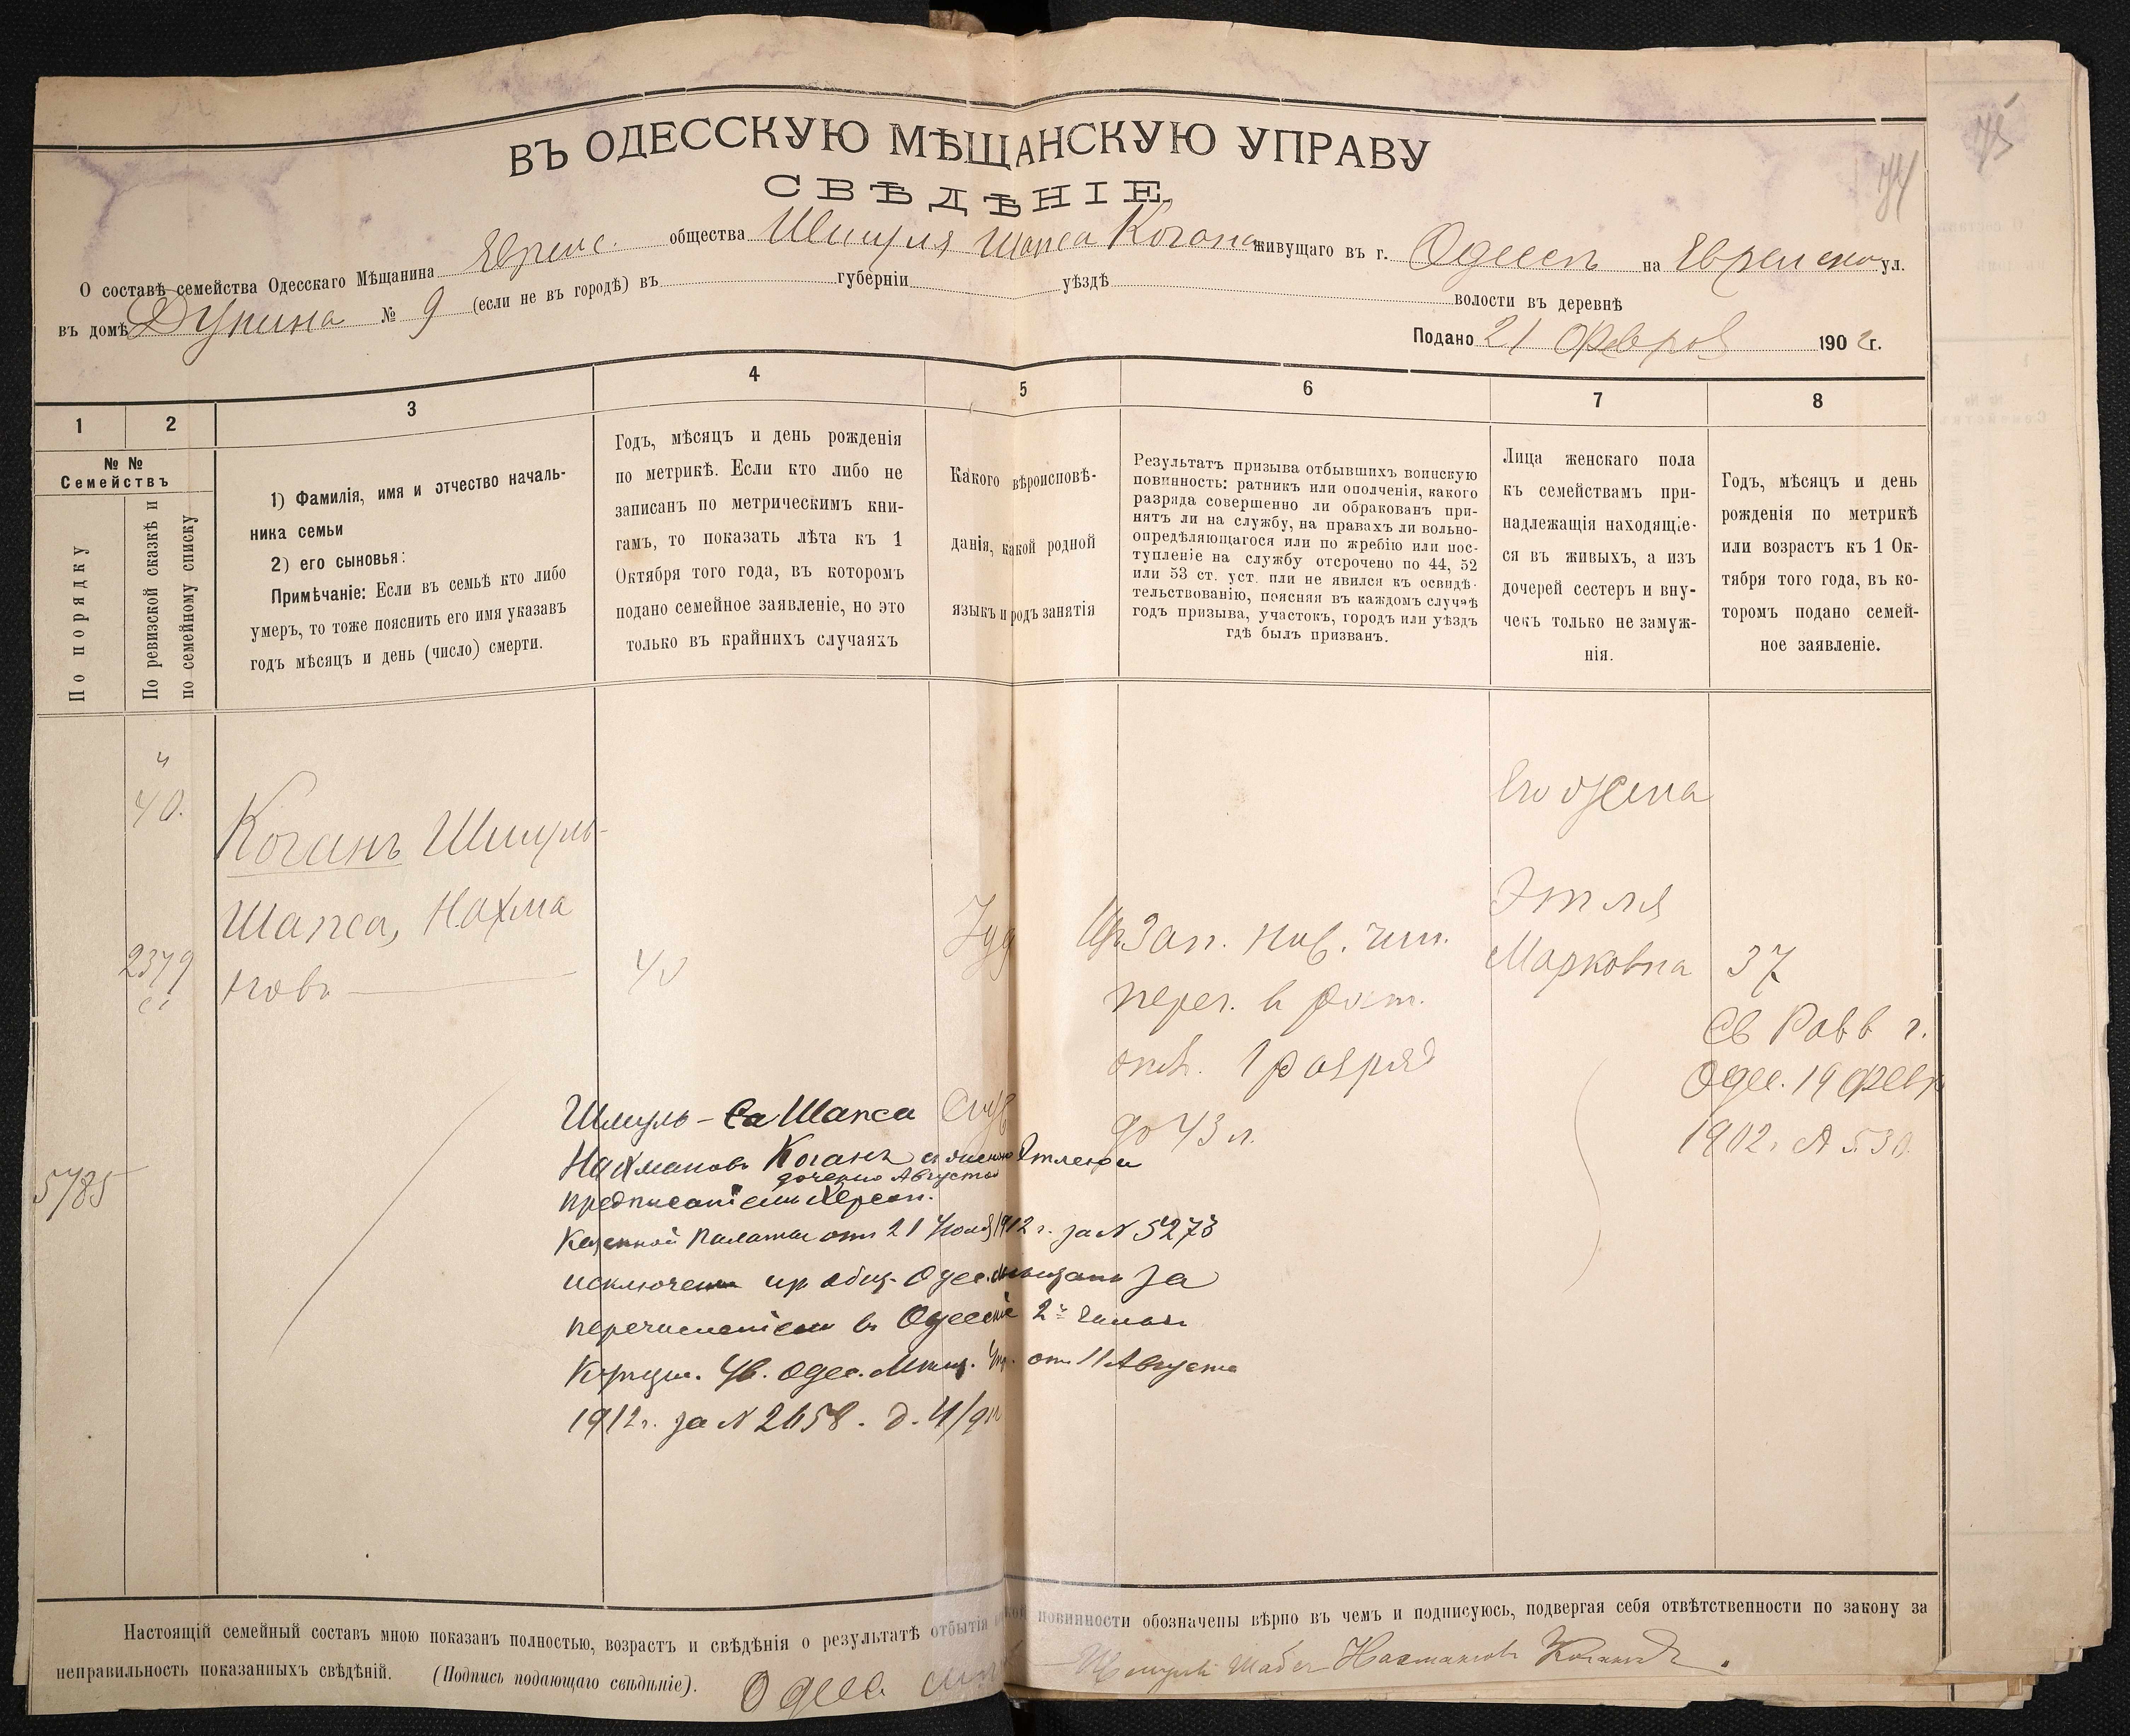 ВЪ ОДЕССКУЮ МѢЩАНСКУЮ УПРАВУ
СВѢДѢНІЕ
О составѣ семейства Одесскаго Мѣщанина Еврейс. общества Шмуля Шапса Когана живущаго въ г. Одессѣ на Еврейской ул.
въ домѣ № 9 (если не въ городѣ) въ губерніи уѣздѣ волости въ деревнѣ
Подано 21 Феврал 1902 г.
1 2 3 4 5 6 7 8
№ № Семействъ
По порядку
По ревизской сказкѣ и по семейному списку
1) Фамилія, имя и отчество началь-
ника семьи
2) его сыновья:
Примѣчаніе: Если въ семьѣ кто либо
умеръ, то тоже пояснить его имя указавъ
годъ мѣсяцъ и день (число) смерти.
Годъ, мѣсяцъ и день рожденія
по метрикѣ. Если кто либо не
записанъ по метрическимъ кни-
гамъ, то показать лѣта къ 1
Октября того года, въ которомъ
подано семейное заявленіе, но это
только въ крайнихъ случаяхъ
Какого вѣроисповѣ-
данія, какой родной
языкъ и родъ занятія
Результатъ призыва отбывшихъ воинскую
повинность: ратникъ или ополченія, какого
разряда совершенно ли обракованъ при-
нятъ ли на службу, на правахъ ли вольно-
опредѣляющагося или по жребію или пос-
тупленіе на службу отсрочено по 44, 52
или 53 ст. уст. или не явился къ освидѣ-
тельствованію, поясняя въ каждомъ случаѣ
годъ призыва, участокъ, городъ или уѣздъ
гдѣ былъ призванъ.
Лица женскаго пола
къ семействамъ при-
надлежащія находящіе-
ся въ живыхъ, а изъ
дочерей сестеръ и вну-
чекъ только не замуж-
нія.
Годъ, мѣсяцъ и день
рожденія по метрикѣ
или возрастъ къ 1 Ок-
тября того года, въ ко-
торомъ подано семей-
ное заявленіе.
40.
2379
5785
Коганъ Шмуль-
Шапса, Нахма
новъ
40
Іуд
Изъ Зап. ниж. чин.
переч. въ рат.
опол. 1 разряд
до 43 л.
Его жена
Этля
Марковна 37
Св Рав в г.
Одес. 19 февр
1902 г. № 530.
Шмуль-Шапса
Нахмановъ Коганъ съ женою Этлею и
дочерью Августою
предписаніемъ Херсон.
Казенной Палаты отъ 21 1912 г. за № 5278
исключенъ изъ общ. Одес. мѣщанъ за
перечисленіемъ въ Одесскіе 2й гильд.
Купцы. Ув. Одес. Мѣщ. Упр. отъ 11 Августа
1912 г. за № 2658.
Настоящій семейный составъ мною показанъ полностью, возрастъ и свѣдѣнія о результатѣ отбытія повинности обозначены вѣрно въ чемъ и подписуюсь, подвергая себя отвѣтственности по закону за
неправильность показанныхъ свѣдѣній. (Подпись подающаго свѣдѣніе). Одесс Нахмановъ Коганъ